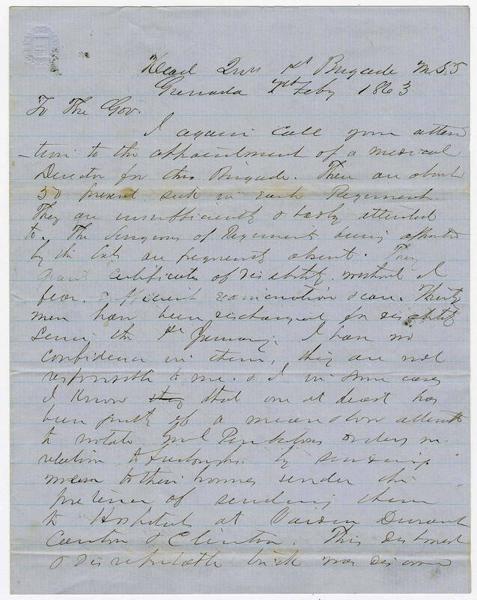 Head Qurs 1st Brigade M.S.T
Grenada 2st Feby 1863
To The Gov.
I again call your atten
-tion to the appointment of a medical
Director for this Brigade. There are about
50 present sick in each Regiment
They are insufficiently & badly attended
to. The Surgeons of Regiments being appointed
by the Cols are frequently absent. They
certificate of disability without I
fear sufficient examination 
men have been discharged for disability
Since the 1st January. I have no
confidence in them, they are not
responsible to me. & I in some cases
I know that one at least has
been guilty of a attempt
to violate Genl Pembertons orders in
relation to furloughs by sending
men to their homes under the
pretence of sending them
to Hospitals at Vaiden Durant
Canton & Clinton. This dishonest
& disreputable trick was